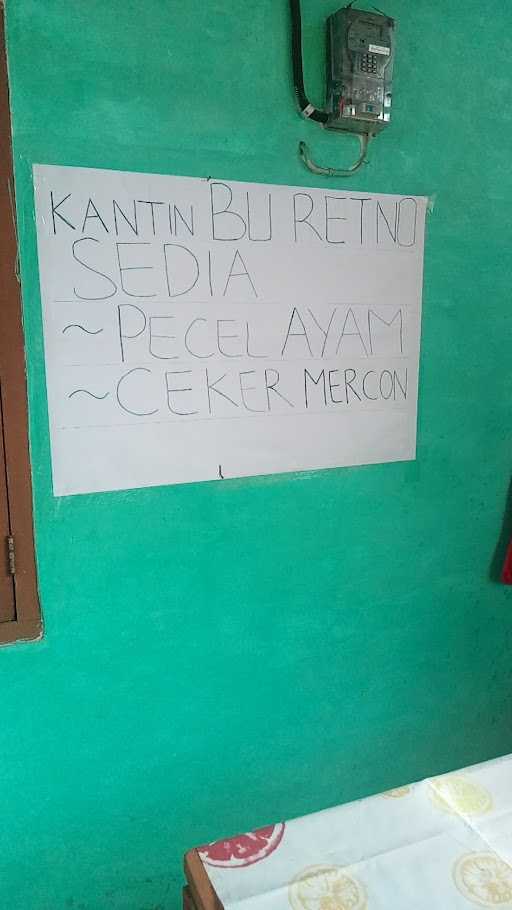 KANTIN BU RETNO
SEDIA
~ PECEL AYAM
~ CEKER MERCON